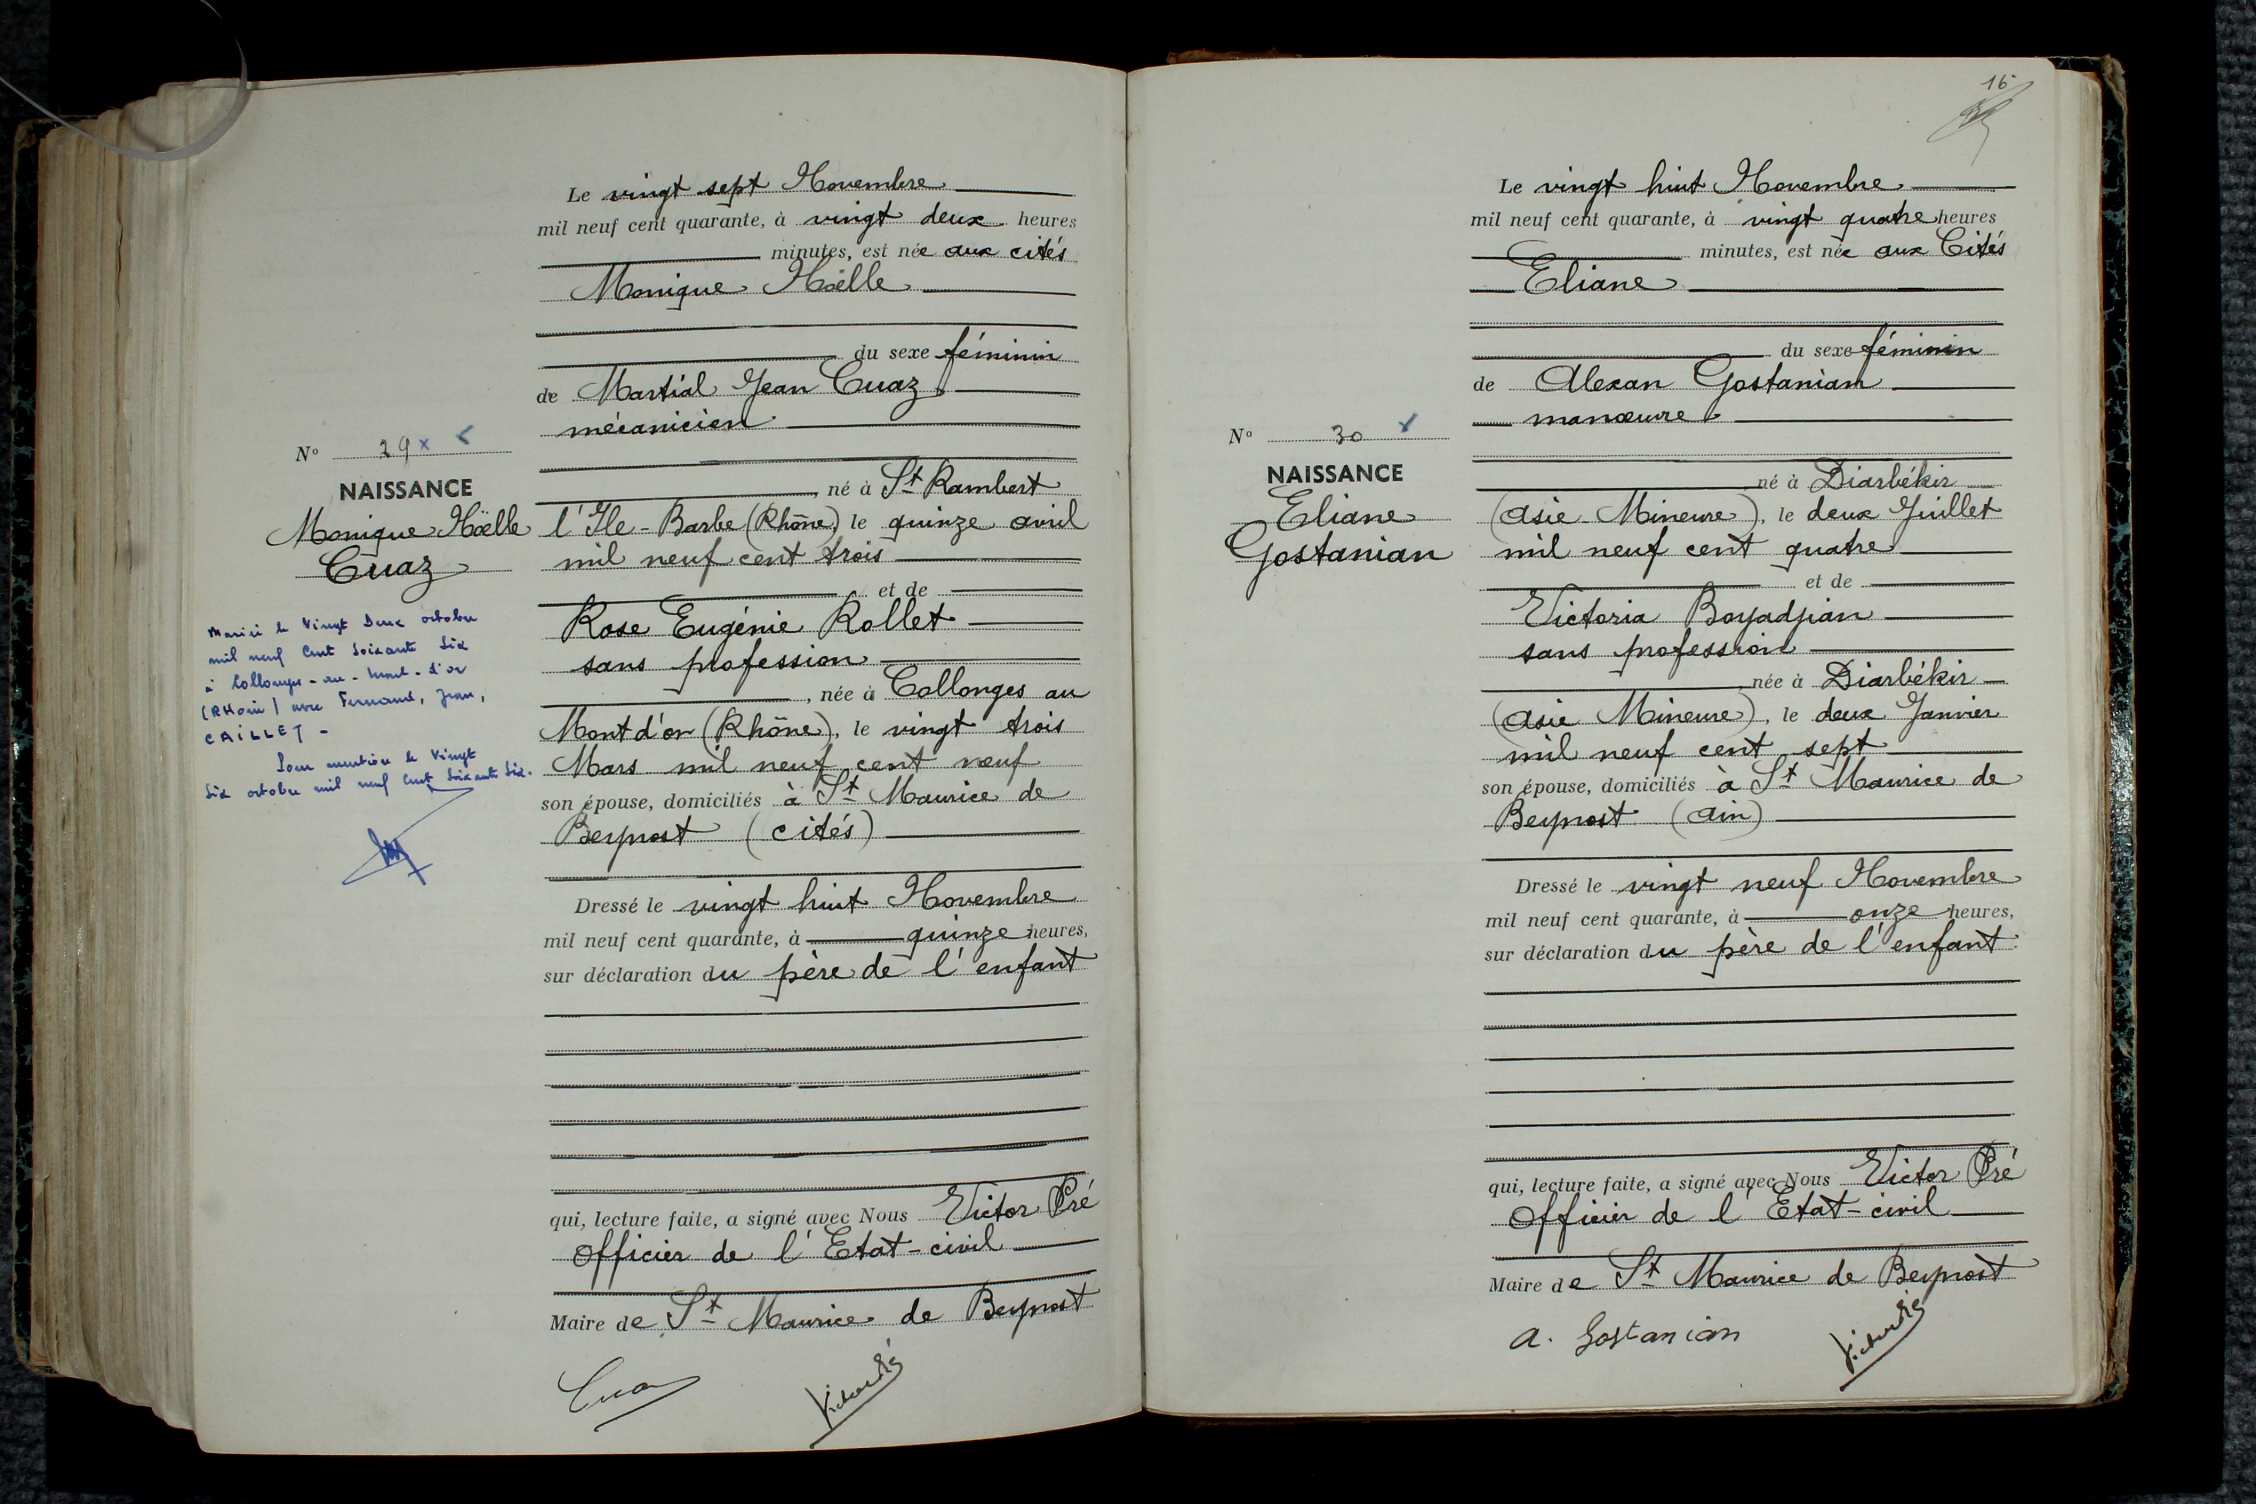 Le vingt sept Novembre
mil neuf cent quarante, à vingt deux heures
minutes, est née aux cités
Monique Noëlle
du sexe féminin
de Martial Jean Cuaz
mécanicien
né à St Rambert
l'Ile-Barbe (Rhône), le quinze avril
mil neuf cent trois
et de
Rose Eugénie Rollet
sans profession
, née à Collonges au
Mont d'or (Rhône), le vingt trois
Mars mil neuf cent neuf
son épouse, domiciliés à St Maurice de
Beynost (cités)
Dressé le vingt huit Novembre
mil neuf cent quarante, à quinze heures,
sur déclaration du père de l'enfant
qui, lecture faite, a signé avec Nous Victor Pré
Officier de l'Etat-civil
Maire de St Maurice de Beynost
Cuaz
Victor Pré
No 29 x
NAISSANCE
Monique Noëlle
Cuaz
Marié le Vingt Deux octobre
mil neuf cent soixante six
à Collonges-au-Mont-d'or
(RHône) avec Fernand, Jean,
CAILLET -
Pour mention le Vingt
six octobre mil neuf cent soixante six.
16
Le vingt huit Novembre
mil neuf cent quarante, à vingt quatre heures
minutes, est née aux Cités
Eliane
du sexe féminin
de Alexan Gostanian
manœuvre
né à Diarbékir
(Asie Mineure), le deux Juillet
mil neuf cent quatre
et de
Victoria Boyadjian
sans profession
née à Diarbékir
(Asie Mineure), le deux Janvier
mil neuf cent sept
son épouse, domiciliés à St Maurice de
Beynost (Ain)
Dressé le vingt neuf Novembre
mil neuf cent quarante, à onze heures,
sur déclaration du père de l'enfant
qui, lecture faite, a signé avec Nous Victor Pré
Officier de l'Etat-civil
Maire de St Maurice de Beynost
A. Gostanian
Victor Pré
No 30
NAISSANCE
Eliane
Gostanian